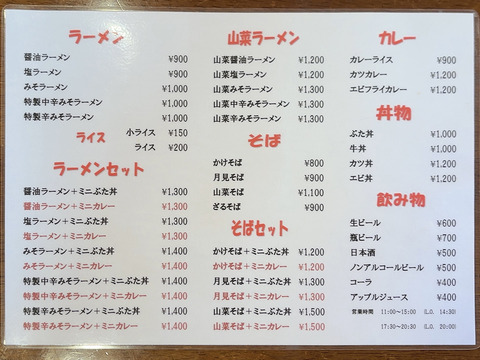 ラーメン
醤油ラーメン ¥900
塩ラーメン ¥900
みそラーメン ¥1,000
特製中辛みそラーメン ¥1,000
特製辛みそラーメン ¥1,000
ライス
小ライス ¥150
ライス ¥200
ラーメンセット
醤油ラーメン+ミニぶた丼 ¥1,300
醤油ラーメン+ミニカレー ¥1,300
塩ラーメン+ミニぶた丼 ¥1,300
塩ラーメン+ミニカレー ¥1,300
みそラーメン+ミニぶた丼 ¥1,400
みそラーメン+ミニカレー ¥1,400
特製中辛みそラーメン+ミニぶた丼 ¥1,400
特製中辛みそラーメン+ミニカレー ¥1,400
特製辛みそラーメン+ミニぶた丼 ¥1,400
特製辛みそラーメン+ミニカレー ¥1,400
山菜ラーメン
山菜醤油ラーメン ¥1,200
山菜塩ラーメン ¥1,200
山菜みそラーメン ¥1,300
山菜中辛みそラーメン ¥1,300
山菜辛みそラーメン ¥1,300
そば
かけそば ¥800
月見そば ¥900
山菜そば ¥1,100
ざるそば ¥900
そばセット
かけそば+ミニぶた丼 ¥1,200
かけそば+ミニカレー ¥1,200
月見そば+ミニぶた丼 ¥1,300
月見そば+ミニカレー ¥1,300
山菜そば+ミニぶた丼 ¥1,500
山菜そば+ミニカレー ¥1,500
カレー
カレーライス ¥900
カツカレー ¥1,200
エビフライカレー ¥1,200
丼物
ぶた丼 ¥1,000
牛丼 ¥1,000
カツ丼 ¥1,200
エビ丼 ¥1,200
飲み物
生ビール ¥600
瓶ビール ¥700
日本酒 ¥500
ノンアルコールビール ¥500
コーラ ¥400
アップルジュース ¥400
営業時間 11:00~15:00 (L.O. 14:30)
17:30~20:30 (L.O. 20:00)